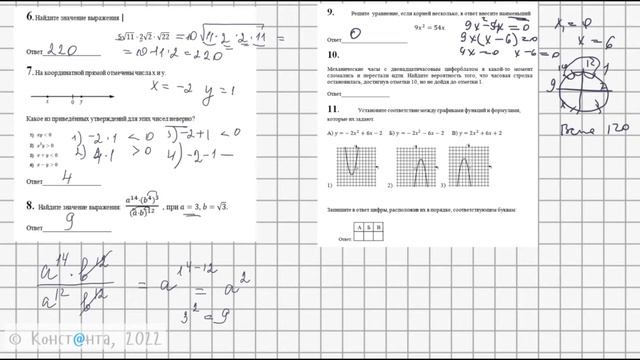 6. Найдите значение выражения
5√11 · 2√2 · √22 = 10 √11 · 2 · 2 · 11 =
= 10 · 11 · 2 = 220
Ответ 220
7. На координатной прямой отмечены числа x и y.
x = -2 y = 1
x 0 y
Какое из приведённых утверждений для этих чисел неверно?
1) xy < 0
2) x²y > 0
3) x + y < 0
4) x − y > 0
1) -2 · 1 < 0 3) -2+1 < 0
2) 4 · 1 > 0 4) -2-1 —
Ответ 4
8. Найдите значение выражения: a¹⁴·(b⁴)³ / (a·b)¹² , при a = 3, b = √3.
Ответ 9
a¹⁴ · b¹² / a¹² b¹² = a¹⁴⁻¹² = a²
3² = 9
© Конст@нта, 2022
9. Решите уравнение, если корней несколько, в ответ внесите наименьший
9x² = 54x.
Ответ 0
9x(x-6)=0
x-6=0
x₁ = 0
x = 6
10.
Механические часы с двенадцатичасовым циферблатом в какой-то момент
сломались и перестали идти. Найдите вероятность того, что часовая стрелка
остановилась, достигнув отметки 10, но не дойдя до отметки 1.
Ответ
12
9
11. Установите соответствие между графиками функций и формулами,
которые их задают.
А) y = −2x² + 6x − 2 Б) y = −2x² − 6x − 2 В) y = 2x² + 6x + 2
1) 2) 3)
Запишите в ответ цифры, расположив их в порядке, соответствующем буквам:
А Б В
Ответ: